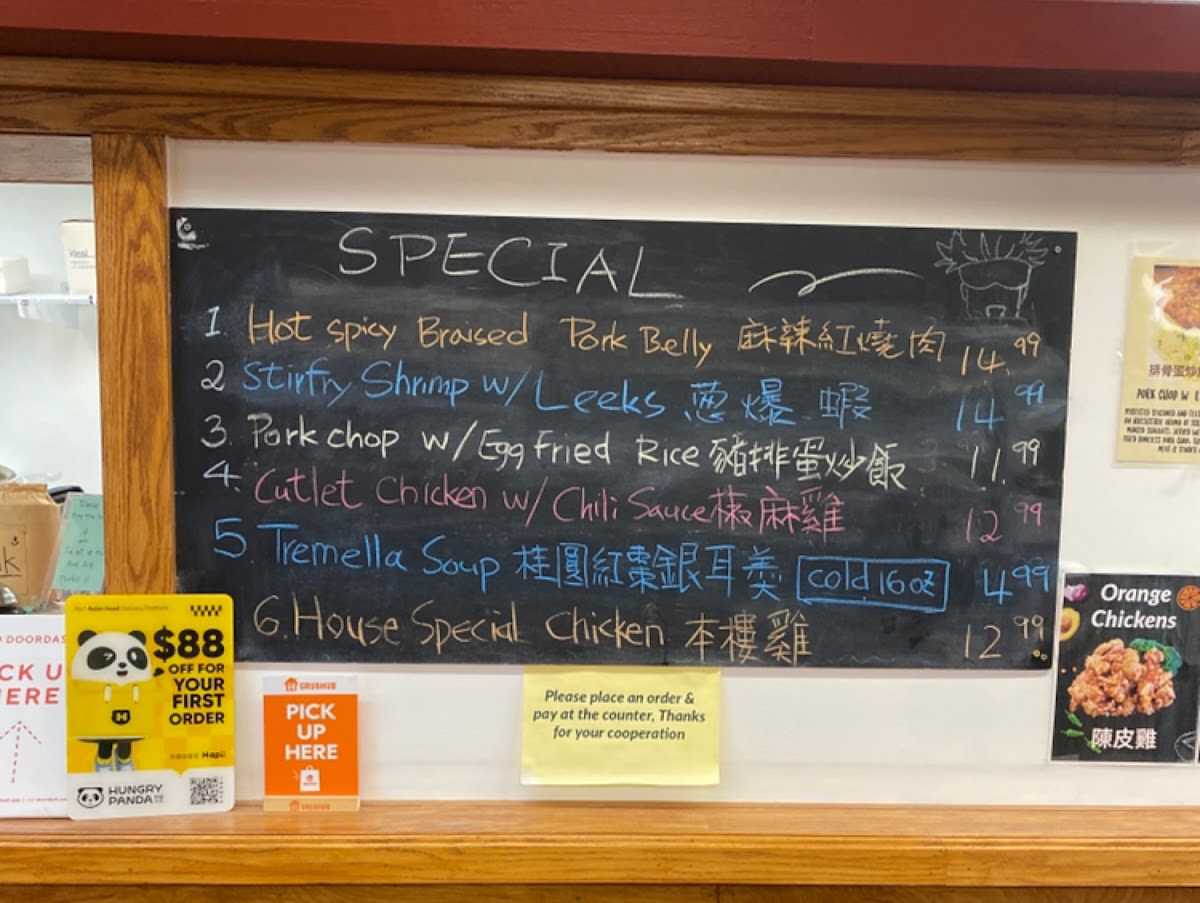 SPECIAL
1. Hot spicy Braised Pork Belly 麻辣紅燒肉 14.99
2 Stirfry Shrimp w/ Leeks 蔥爆 蝦 14.99
3. Pork chop w/ Egg Fried Rice 豬排蛋炒飯 11.99
4. Cutlet Chicken w/ Chili Sauce 椒麻雞 12.99
5. Tremella Soup 桂圓紅棗銀耳羹 cold 16 oz 4.99
6. House Special Chicken 本樓雞 12.99
排骨蛋炒
PORK CHOP W
Orange
Chickens
陳皮雞
DOORDAS
CK U
ERE
Asian Food Delivery Platform
$88
OFF FOR
YOUR
FIRST
ORDER
HUNGRY
PANDA
GRUBHUB
PICK
UP
HERE
GRUBHUB
Please place an order &
pay at the counter, Thanks
for your cooperation